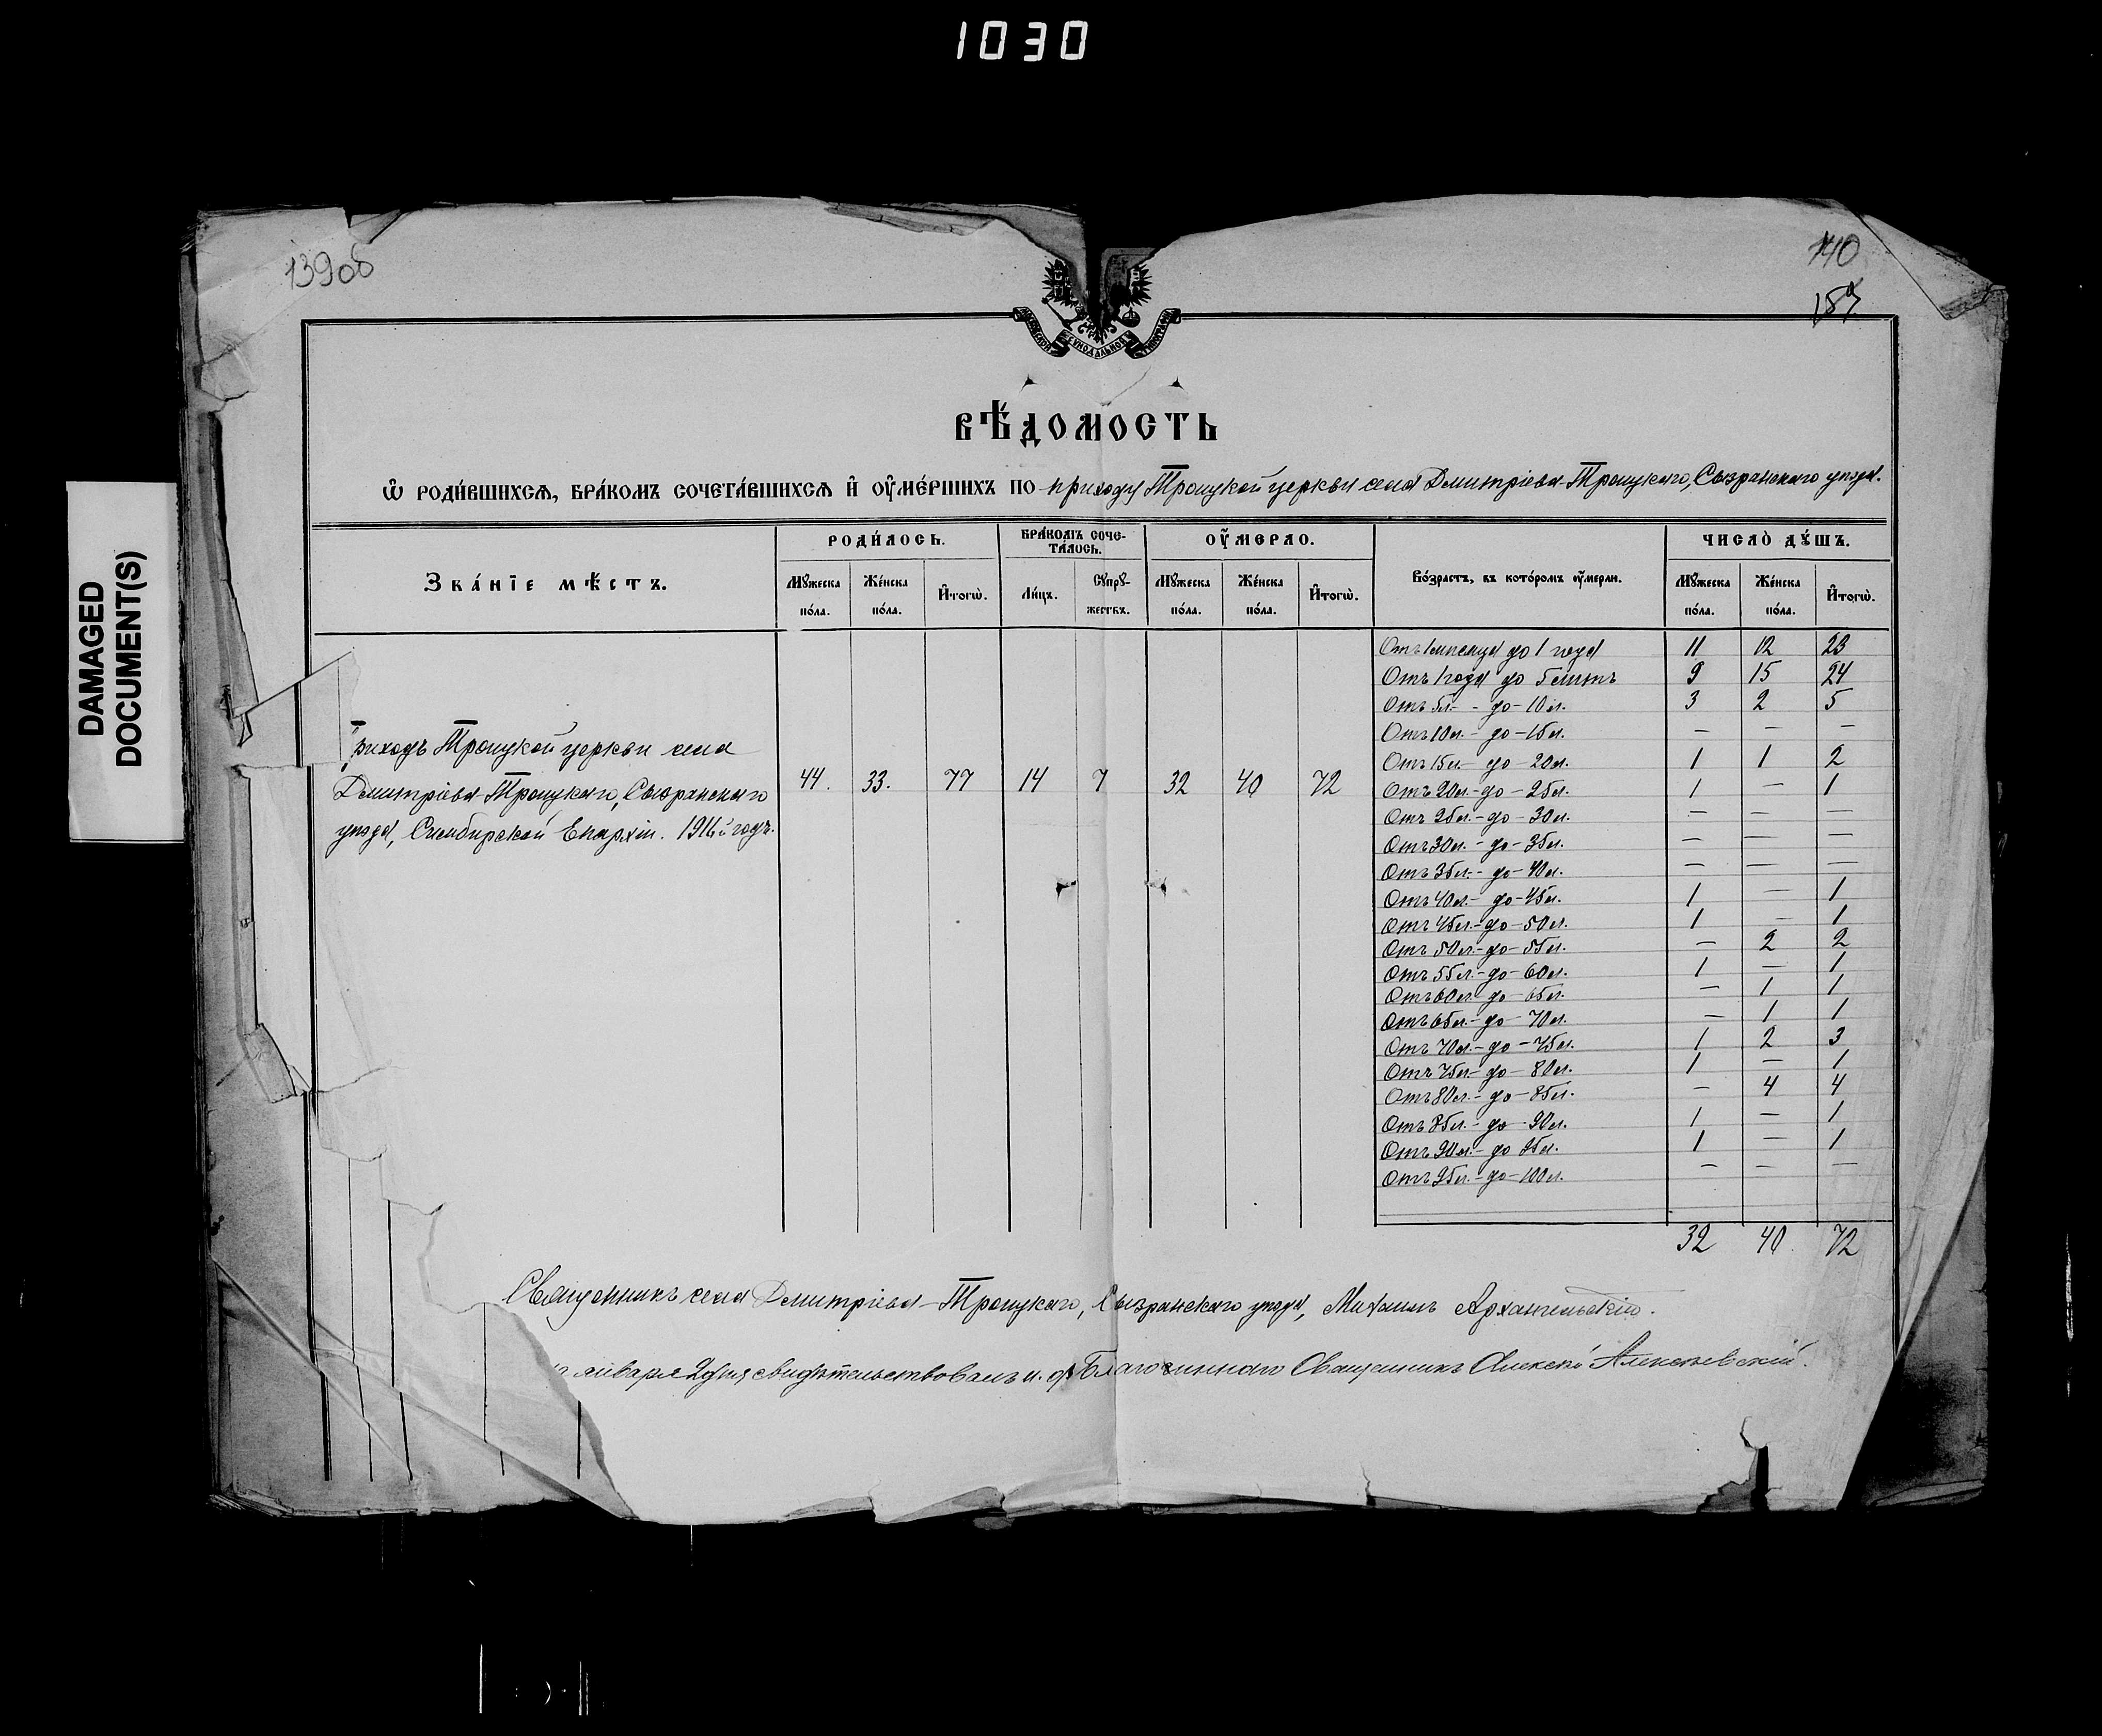 1030
DAMAGED
DOCUMENT(S)
139об
140
ВѢ́ДОМОСТЬ
Ѡ҆ РОДИ́ВШИХСѦ, БРА́КОМЪ СОЧЕТА́ВШИХСѦ И҆ ОУ҆МЕ́РШИХЪ ПО приходу Троицкой церкви села Дмитріева-Троицкаго, Сызранскаго уѣзда.
Зва́нїе мѣ́стъ.
РОДИ́ЛОСЬ.
БРА́КОМЪ СОЧЕ-
ТА́ЛОСЬ.
ОУ҆́МЕРЛО.
Во́зрастъ, въ кото́ромъ оу҆́мерли.
ЧИСЛО̀ ДꙊ́ШЪ.
Мꙋ́жеска по́ла. Же́нска по́ла. И҆тогѡ̀. Ли́цъ. Сꙋпрꙋ́-жествъ. Мꙋ́жеска по́ла. Же́нска по́ла. И҆тогѡ̀. Мꙋ́жеска по́ла. Же́нска по́ла. И҆тогѡ̀.
Приходъ Троицкой церкви села
Дмитріева-Троицкаго, Сызранскаго
уѣзда, Симбирской Епархіи. 1916й годъ.
44. 33. 77 14 7 32 40 72
Отъ 1 мѣсяца до 1 года 11 12 23
Отъ 1 года до 5 лѣтъ 9 15 24
Отъ 5л. - до - 10л. 3 2 5
Отъ 10л. - до - 15л. — — —
Отъ 15л. - до - 20л. 1 1 2
Отъ 20л. - до - 25л. 1 — 1
Отъ 25л. - до - 30л. — — —
Отъ 30л. - до - 35л. — — —
Отъ 35л. - до - 40л. — — —
Отъ 40л. - до - 45л. 1 — 1
Отъ 45л. - до - 50л. 1 — 1
Отъ 50л. - до - 55л. — 2 2
Отъ 55л. - до - 60л. 1 — 1
Отъ 60л. - до - 65л. — 1 1
Отъ 65л. - до - 70л. — 1 1
Отъ 70л. - до - 75л. 1 2 3
Отъ 75л. - до - 80л. 1 — 1
Отъ 80л. - до - 85л. — 4 4
Отъ 85л. - до - 90л. 1 — 1
Отъ 90л. - до 95л. 1 — 1
Отъ 95л. - до - 100л. — — —
32 40 72
Священникъ села Дмитріева-Троицкаго, Сызранскаго уѣзда, Михаилъ Архангельскій.
января 2 дня свидѣтельствовалъ и. д. Благочиннаго Священникъ Алексѣй Алексѣевскій.